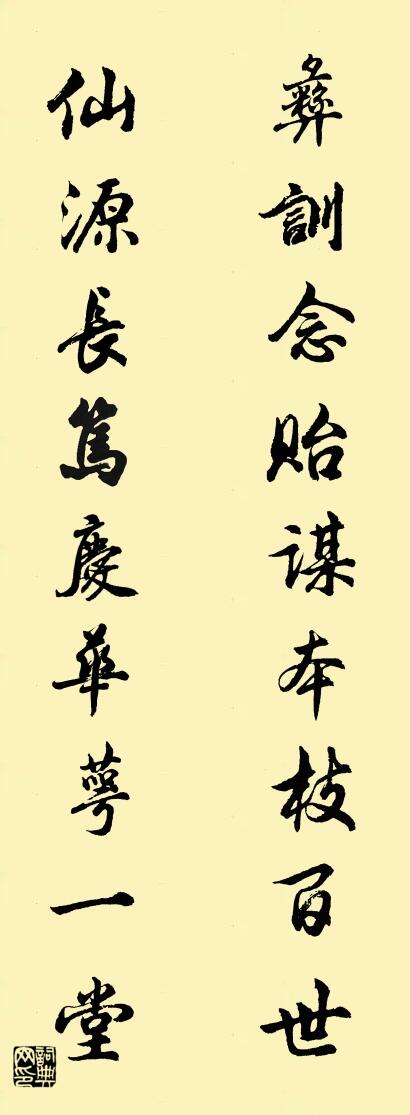 彝訓念貽謀本枝百世
仙源長篤慶華萼一堂
詞典网印